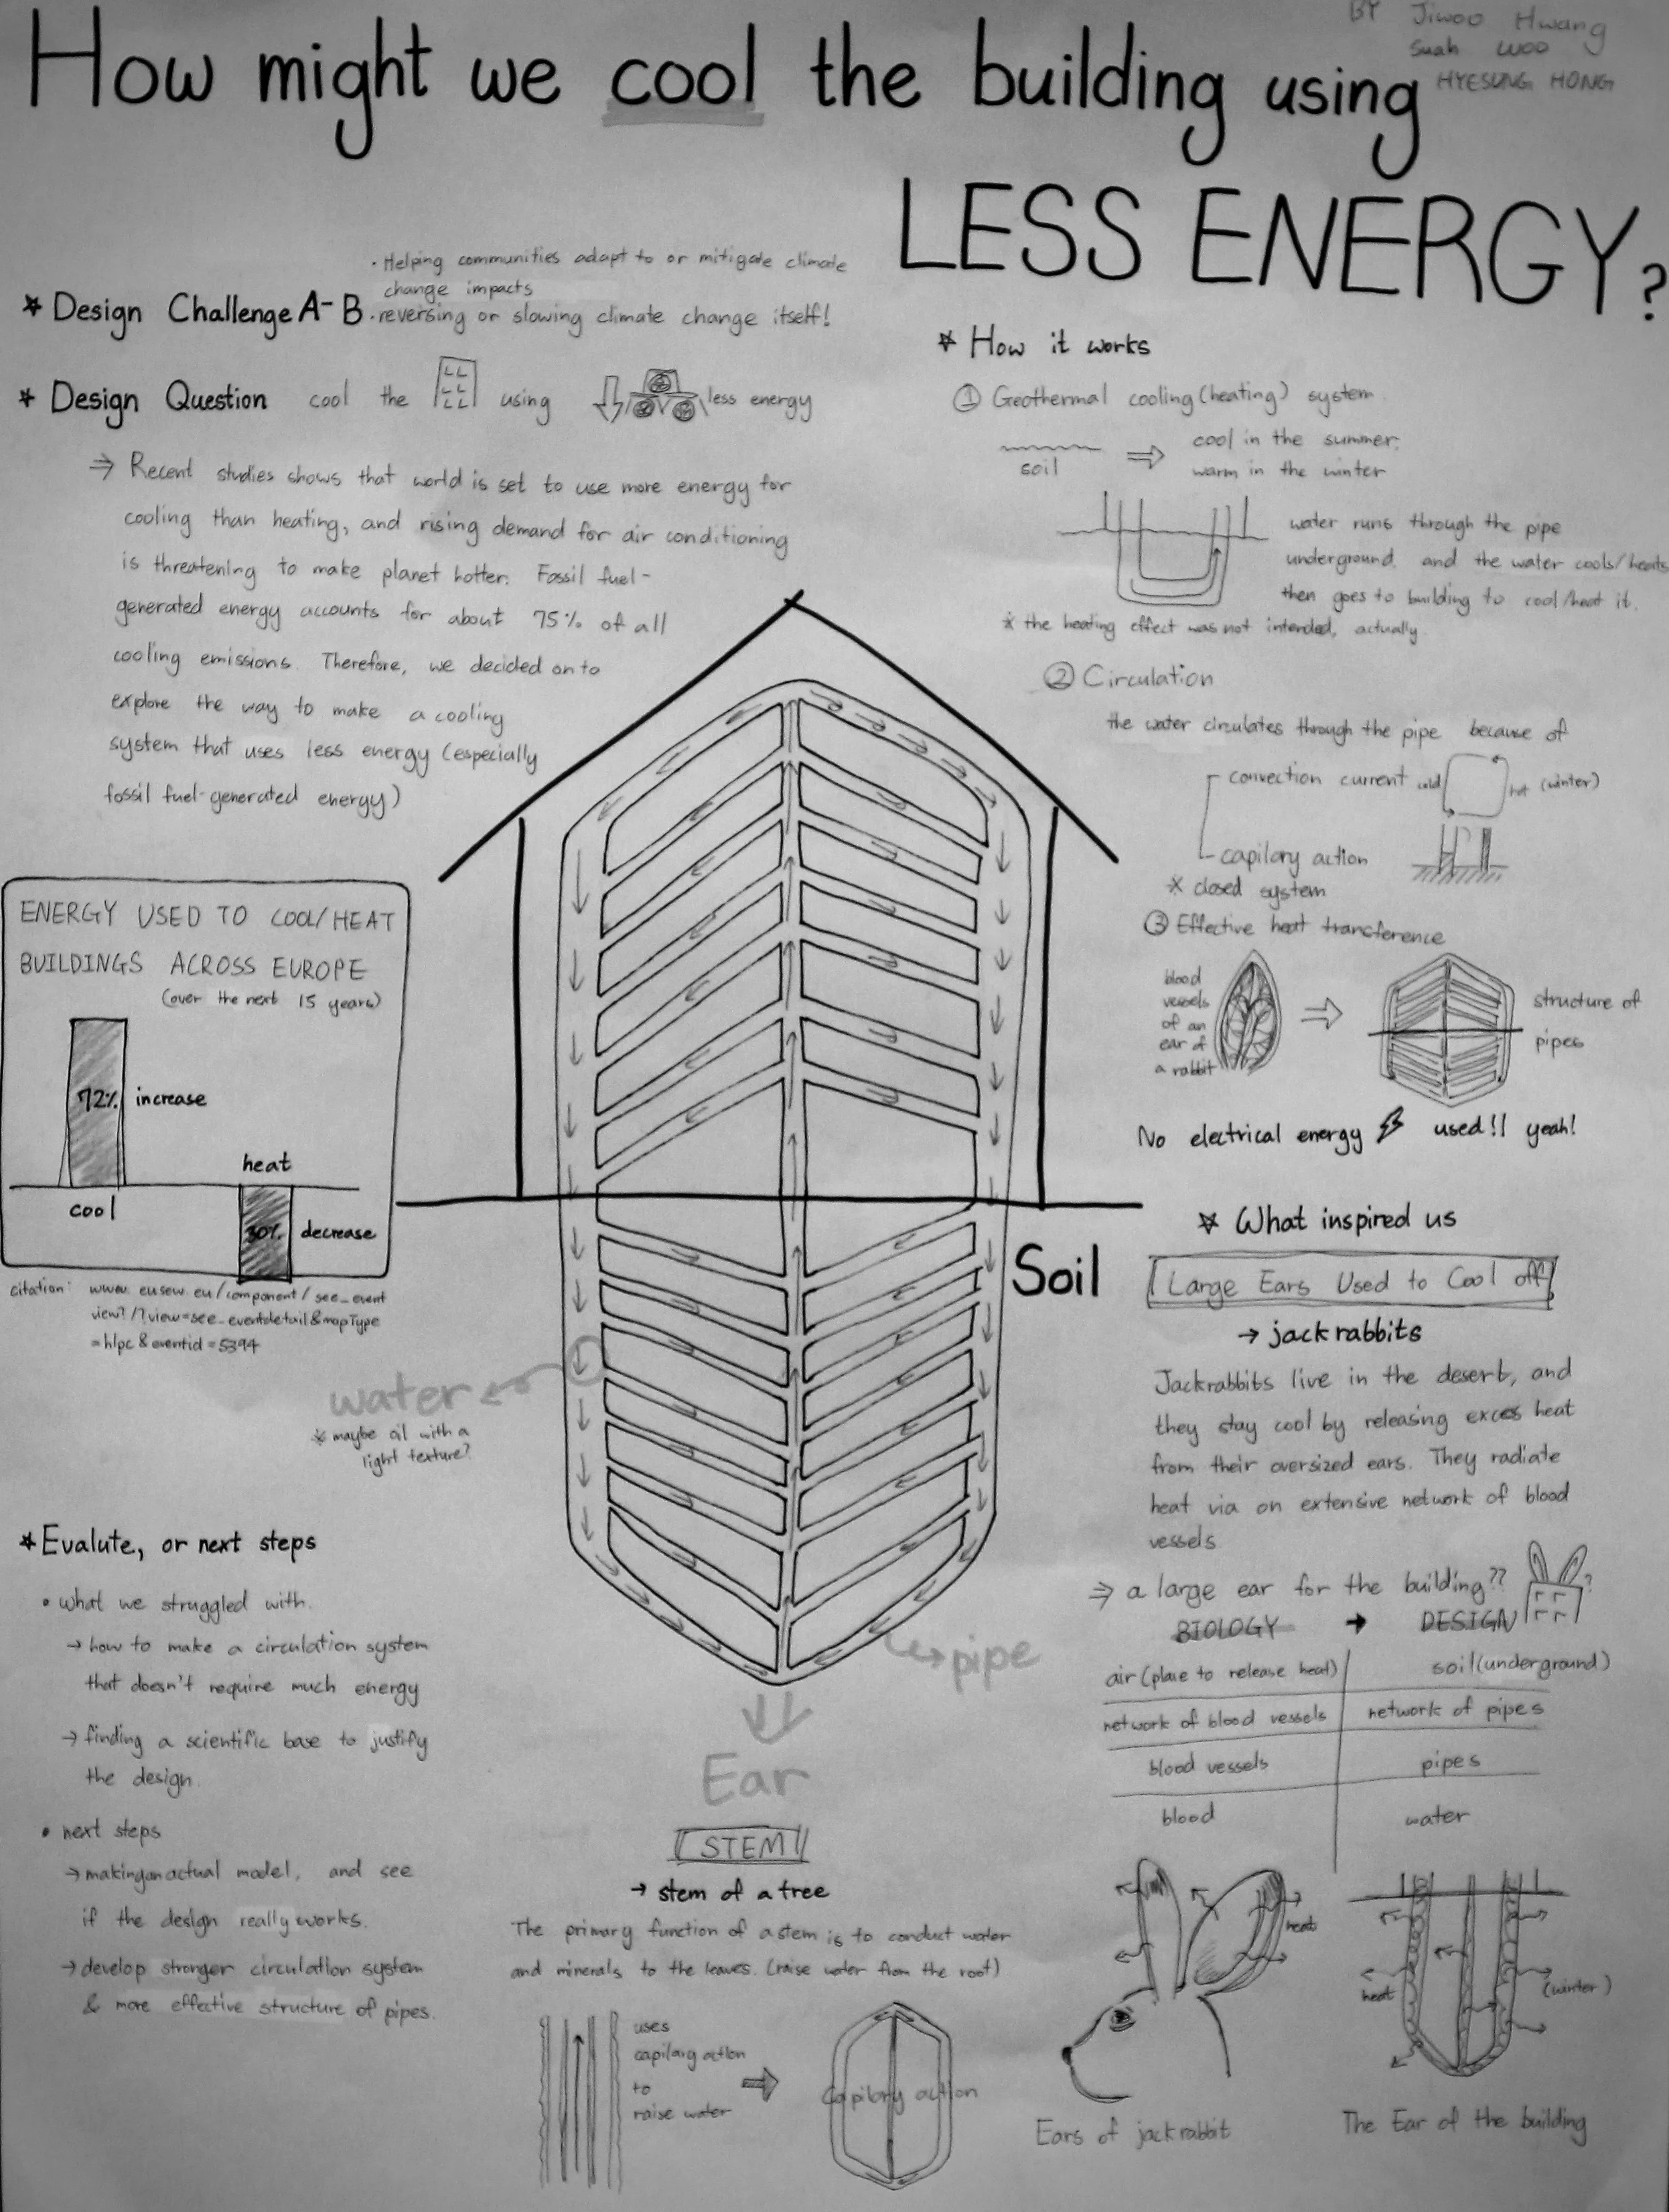 BY Jiwoo Hwang
Suah Woo
HYESUNG HONG
How might we cool the building using
LESS ENERGY?
• Helping communities adapt to or mitigate climate
change impacts
* Design Challenge A-B • reversing or slowing climate change itself!
* Design Question cool the using less energy
⇒ Recent studies shows that world is set to use more energy for
cooling than heating, and rising demand for air conditioning
is threatening to make planet hotter. Fossil fuel-
generated energy accounts for about 75% of all
cooling emissions. Therefore, we decided on to
explore the way to make a cooling
system that uses less energy (especially
fossil fuel-generated energy)
ENERGY USED TO COOL/HEAT
BUILDINGS ACROSS EUROPE
(over the next 15 years)
72% increase
cool
heat
30% decrease
citation: www.eusew.eu/component/see_event
view?/?view=see_eventdetail&mapType
=hlpc&eventid=5394
water
* maybe oil with a
light texture?
Soil
→ pipe
Ear
* Evalute, or next steps
• what we struggled with.
→ how to make a circulation system
that doesn't require much energy
→ finding a scientific base to justify
the design.
• next steps
→ making an actual model, and see
if the design really works.
→ develop stronger circulation system
& more effective structure of pipes.
STEM
→ stem of a tree
The primary function of a stem is to conduct water
and minerals to the leaves. (raise water from the root)
uses
capilary action
to
raise water
Capilary action
* How it works
① Geothermal cooling (heating) system
soil ⇒ cool in the summer,
warm in the winter
water runs through the pipe
underground, and the water cools/heats
then goes to building to cool/heat it.
* the heating effect was not intended, actually.
② Circulation
the water circulates through the pipe because of
convection current cold hot (winter)
capilary action
* closed system
③ Effective heat transference
blood
vessels
of an
ear of
a rabbit
⇒
structure of
pipes
No electrical energy used!! yeah!
* What inspired us
Large Ears Used to Cool off
→ jackrabbits
Jackrabbits live in the desert, and
they stay cool by releasing exces heat
from their oversized ears. They radiate
heat via an extensive network of blood
vessels
⇒ a large ear for the building?? ?
BIOLOGY → DESIGN
air (place to release heat) soil (underground)
network of blood vessels network of pipes
blood vessels pipes
blood water
heat
heat
(winter)
Ears of jackrabbit
The Ear of the building